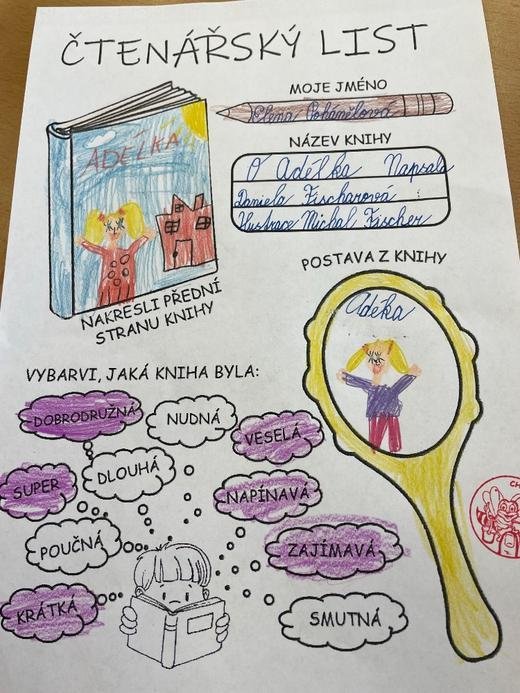 ČTENÁŘSKÝ LIST
MOJE JMÉNO
Elena Pohánělová
NÁZEV KNIHY
O Adélka Napsala
Daniela Fischarová
Ilustrace Michal Fischer
ADÉLKA
NAKRESLI PŘEDNÍ
STRANU KNIHY
POSTAVA Z KNIHY
Adéka
VYBARVI, JAKÁ KNIHA BYLA:
DOBRODRUŽNÁ
NUDNÁ
VESELÁ
DLOUHÁ
SUPER
NAPÍNAVÁ
POUČNÁ
ZAJÍMAVÁ
KRÁTKÁ
SMUTNÁ